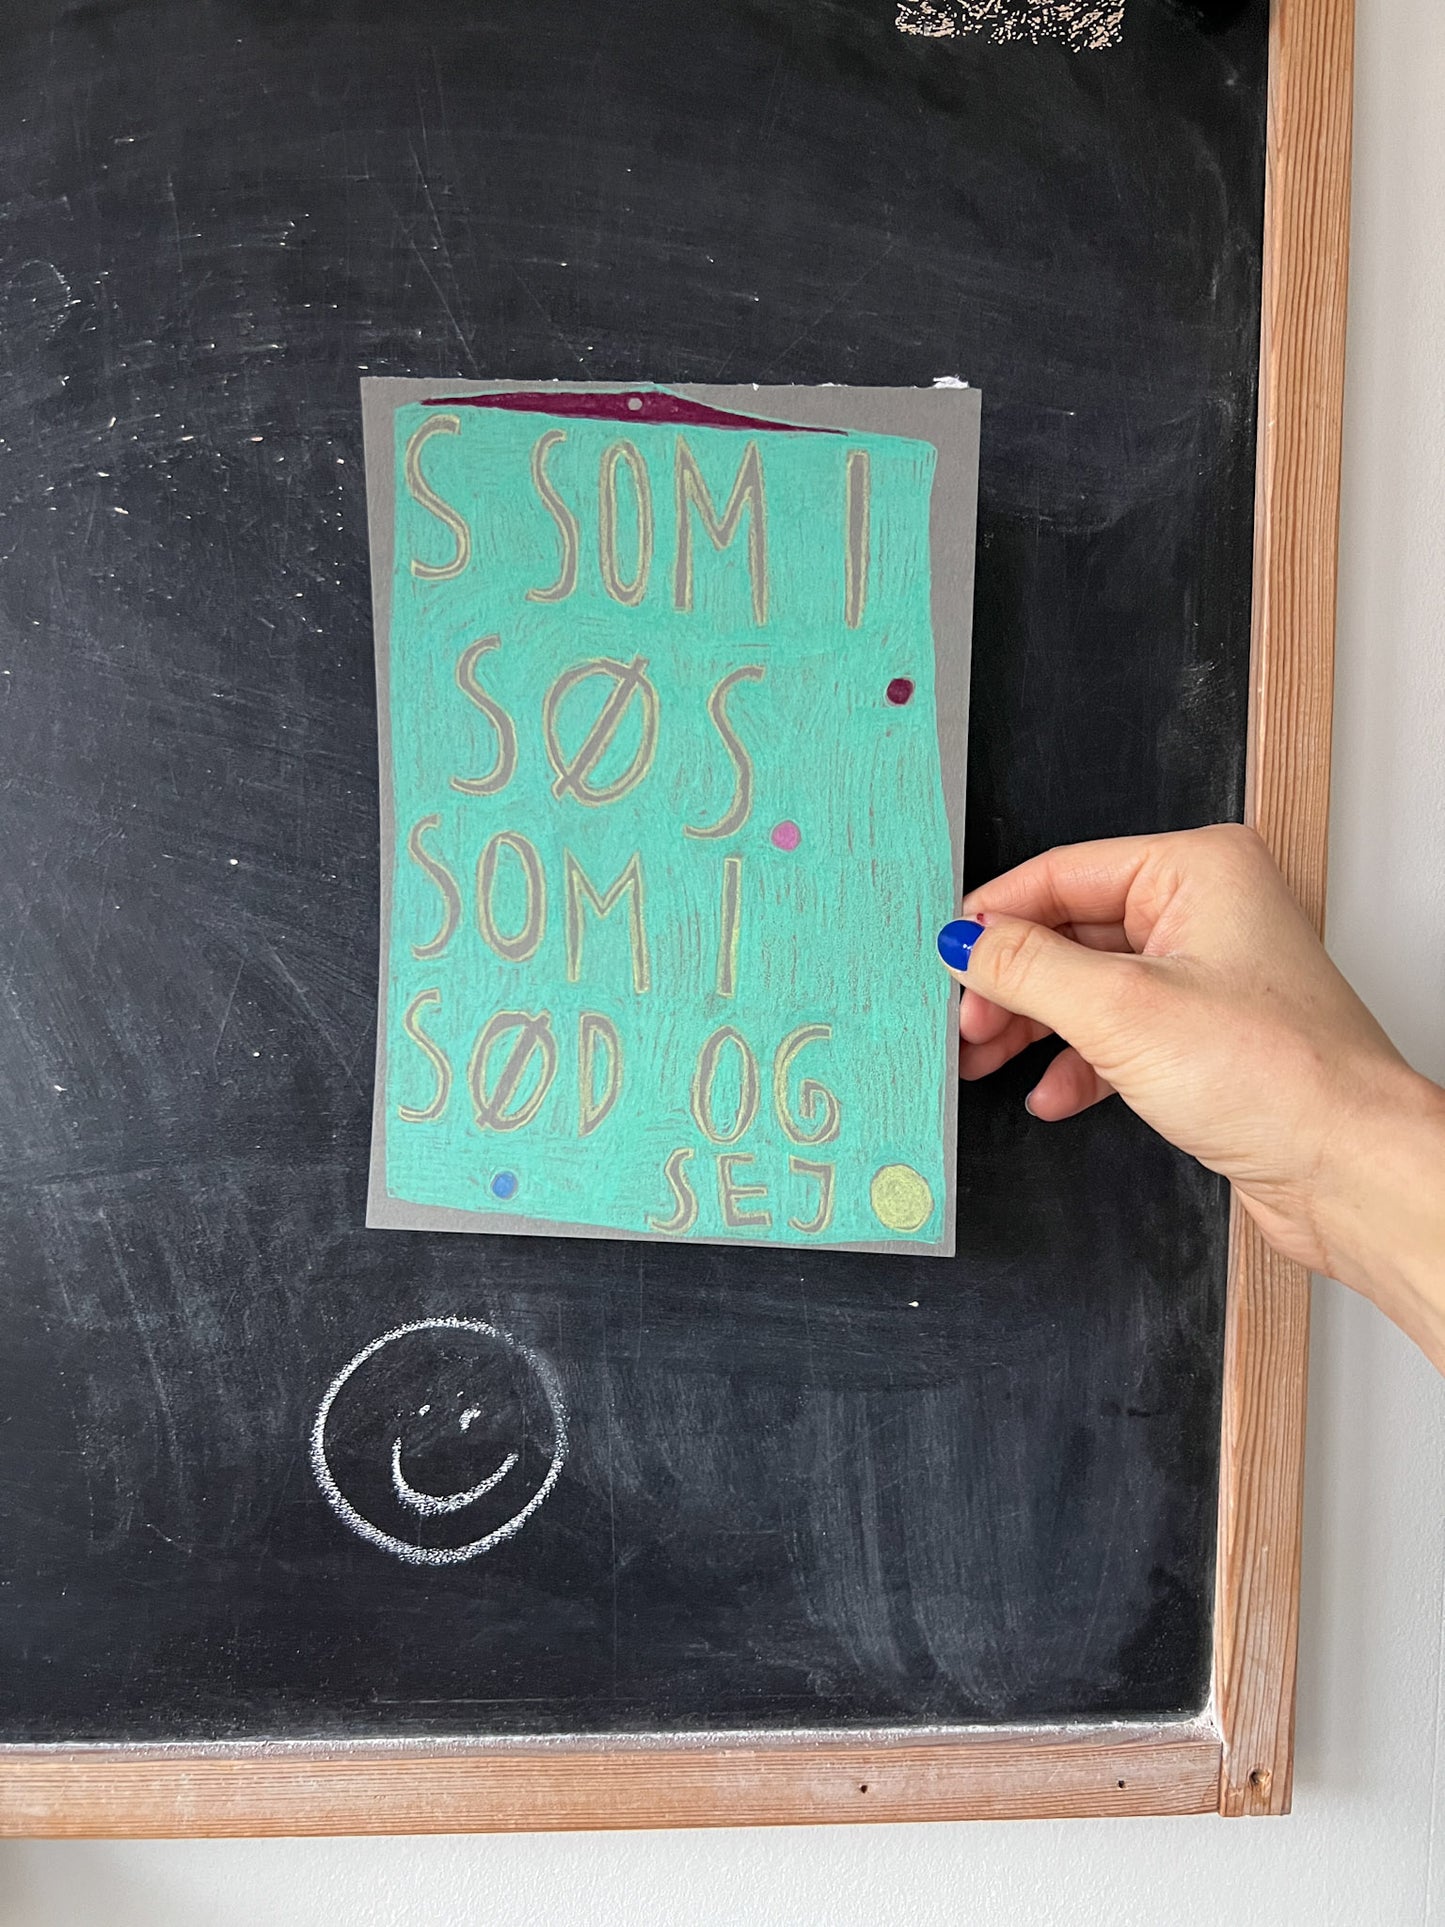 S SOM I
SØS
SOM I
SØD OG
SEJ